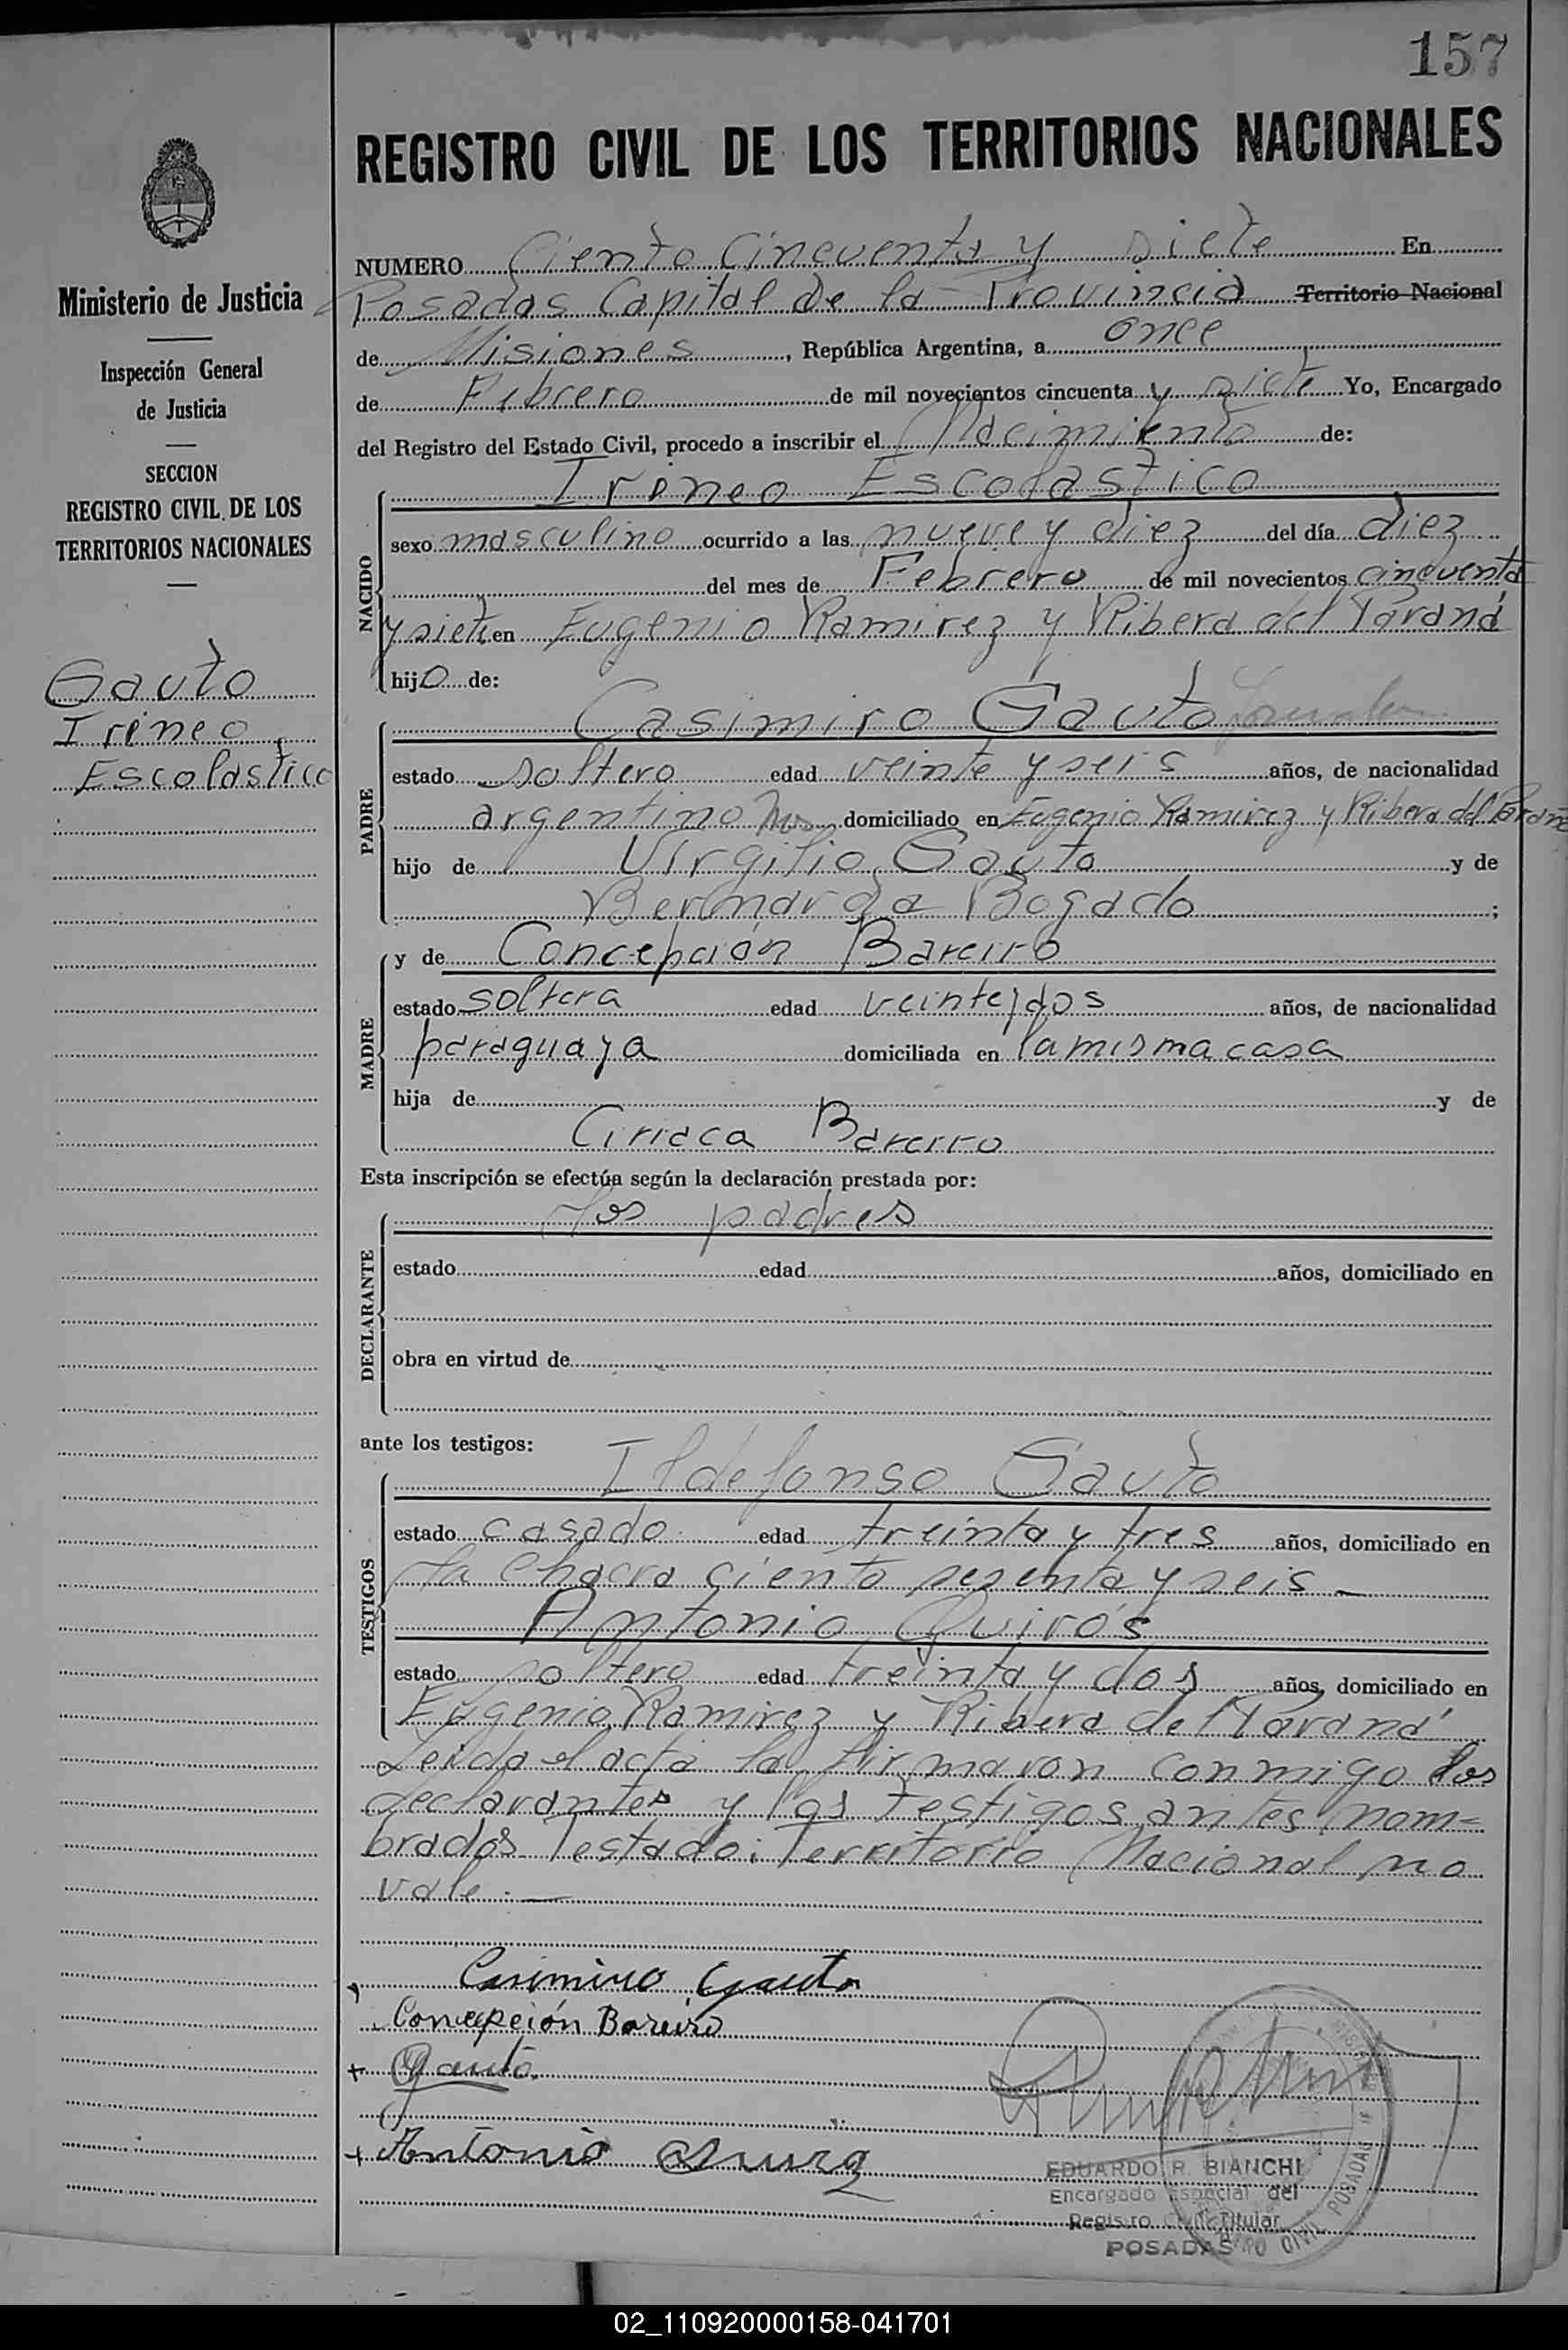 157
REGISTRO CIVIL DE LOS TERRITORIOS NACIONALES
Ministerio de Justicia
Inspección General
de Justicia
SECCION
REGISTRO CIVIL DE LOS
TERRITORIOS NACIONALES
Gauto
Irineo
Escolastico
NUMERO Ciento Cincuenta y siete En
Posadas Capital de la Provincia Territorio Nacional
de Misiones, República Argentina, a once
de Febrero de mil novecientos cincuenta y siete Yo, Encargado
del Registro del Estado Civil, procedo a inscribir el Nacimiento de:
NACIDO
Irineo Escolastico
sexo masculino ocurrido a las nueve y diez del día diez
del mes de Febrero de mil novecientos cincuenta
y siete en Eugenio Ramirez y Ribera del Paraná
hijo de:
PADRE
Casimiro Gauto
estado soltero edad veinte y seis años, de nacionalidad
argentino domiciliado en Eugenio Ramirez y Ribera del Paraná
hijo de Virgilio Gauto y de
Bernarda Bogado;
MADRE
y de Concepción Bareiro
estado soltera edad veintey dos años, de nacionalidad
paraguaya domiciliada en la misma casa
hija de y de
Ciriaca Bareiro
Esta inscripción se efectúa según la declaración prestada por:
DECLARANTE
los padres
estado edad años, domiciliado en
obra en virtud de
ante los testigos:
TESTIGOS
Ildefonso Gauto
estado casado edad treinta y tres años, domiciliado en
la Chacra ciento sesenta y seis –
Antonio Quirós
estado soltero edad treinta y dos años, domiciliado en
Eugenio Ramirez y Ribera del Paraná
Leida el acta la firmaron conmigo los
declarantes y los testigos antes nom=
brados Testado: Territorio Nacional no
vale. —
Casimiro Gauto
Concepción Bareiro
+ Gauto
+ Antonio
EDUARDO R. BIANCHI
Encargado Especial del
Registro Civil Titular
POSADAS
02_110920000158-041701